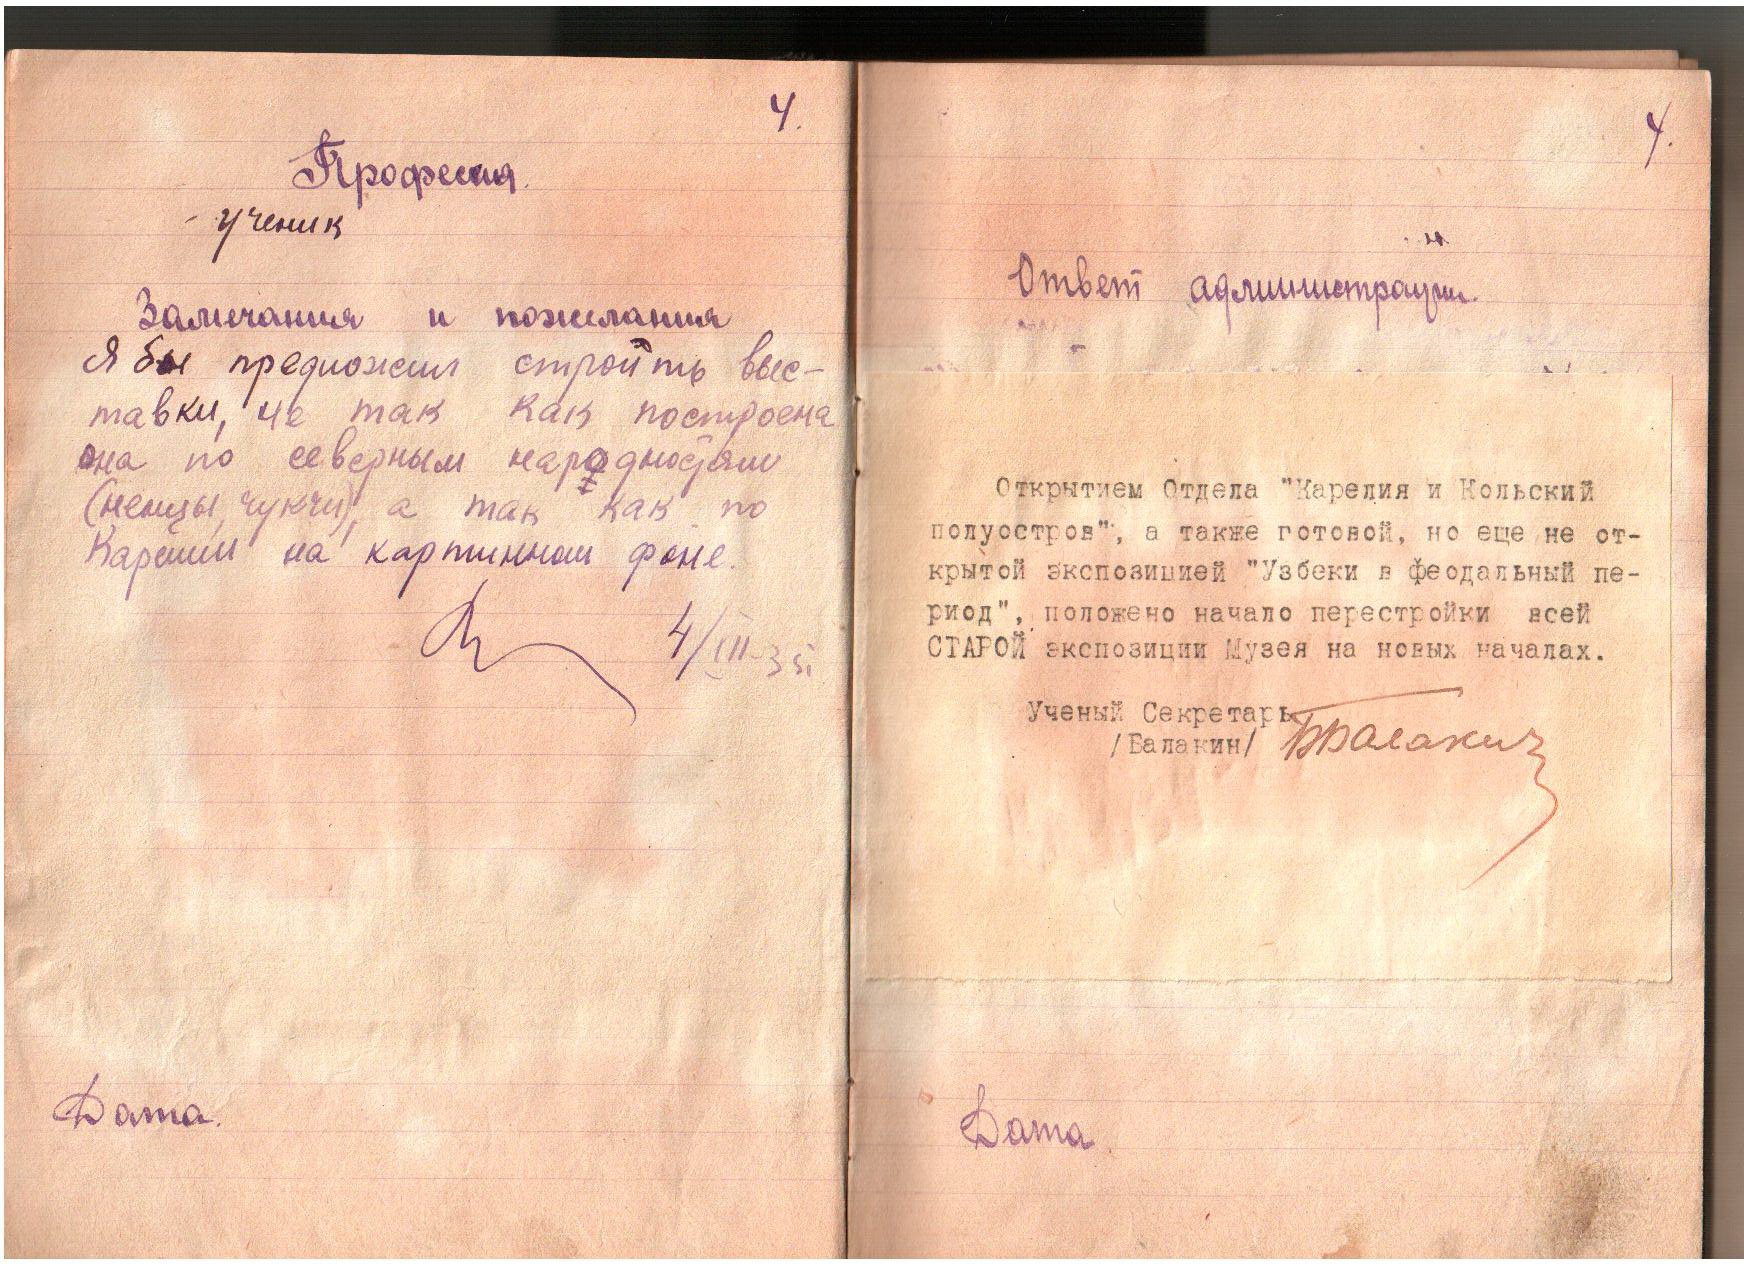 4.
Професия.
- ученик
Замечания и пожелания
Я бы предложил строить выс-
тавки, не так как построена
она по северным народностям
(ненцы, чукчи), а так как по
Карелии на картинном фоне.
4/III-35
Дата.
4.
Ответ администрации.
Открытием Отдела "Карелия и Кольский
полуостров", а также готовой, но еще не от-
крытой экспозицией "Узбеки в феодальный пе-
риод", положено начало перестройки всей
СТАРОЙ экспозиции Музея на новых началах.
Ученый Секретарь
/Балакин/ Балакин
Дата